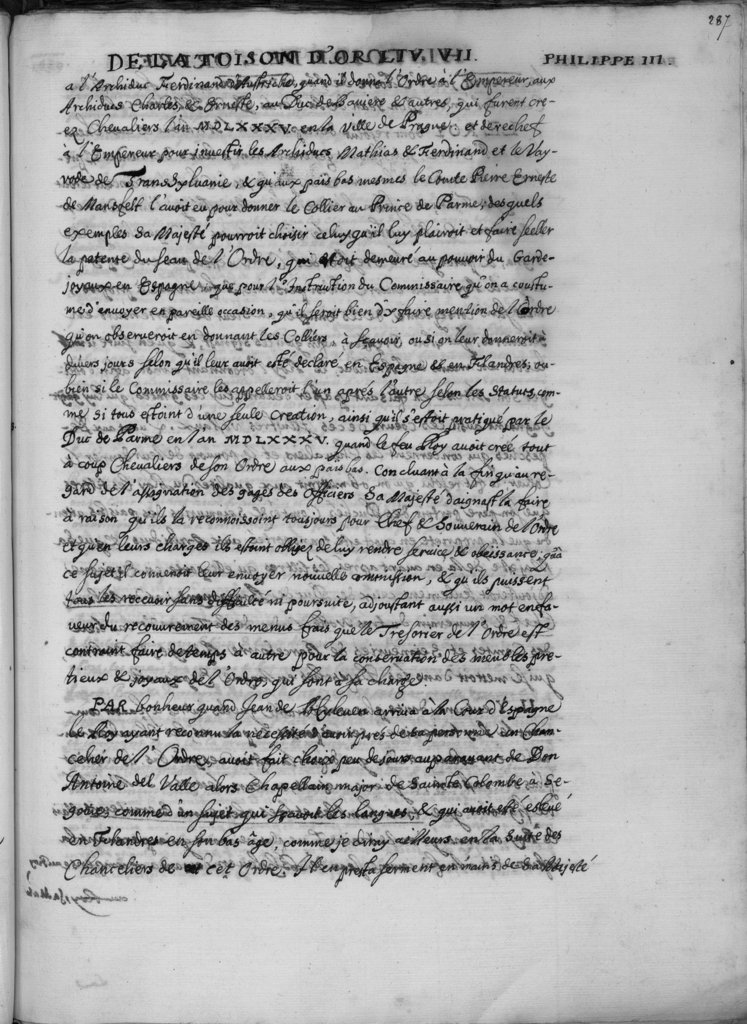 287
DE LA TOISON D'OR LIV. VII. PHILIPPE III.
a l'Archiduc Ferdinand d'Austriche, quand il donna l'Ordre à l'Empereur, aux
Archiducs Charles, & Erneste, au Duc de Baviere & autres, qui furent cre-
ez Chevaliers l'an MDLXXXV en la ville de Prague: et derechef
à l'Empereur pour investir les Archiducs Mathias & Ferdinand et le Vay-
vode de Transsylvanie, & qu'aux païs bas mesmes le Comte Pierre Erneste
de Mansfelt l'avoit eu pour donner le Collier au Prince de Parme; desquels
exemples Sa Majesté pourroit choisir celuy qu'il luy plairoit et faire seeller
la patente du seau de l'Ordre, qui estoit demeuré au pouvoir du Garde-
joyaux en Espagne: que pour l'Instruction du Commissaire qu'on a coustu-
me d'envoyer en pareille occasion, qu'il seroit bien d'y faire mention de l'Ordre
qu'on observeroit en donnant les Colliers, à sçavoir, ou si on leur donneroit à
divers jours selon qu'il leur avoit esté declaré en Espagne & en Flandres; ou
bien si le Commissaire les appelleroit l'un aprés l'autre selon les Statuts, com-
me si tous estoint d'une seule creation, ainsi qu'il s'estoit pratiqué par le
Duc de Parme en l'an MDLXXXV. quand le feu Roy avoit creé tout
à coup Chevaliers de son Ordre aux païs bas. Concluant à la fin qu'au re-
gard de l'assignation des gages des Officiers Sa Majesté daignast la faire
à raison qu'ils la reconnoissoint tousjours pour Chef & Souverain de l'Ordre
et qu'en leurs charges ils estoint obligez de luy rendre service & obeissance; qu'à
ce sujet il convenoit leur envoyer nouvelle commission, & qu'ils puissent
tous les recevoir sans difficulté ni poursuite, adjoustant aussi un mot en fa-
veur du recouvrement des menus frais que le Tresorier de l'Ordre est
contraint faire de temps à autre pour la conservation des meubles pre-
tieux & joyaux de l'Ordre, qui sont à sa charge.
PAR bonheur quand Jean de arriva à la Cour d'Espagne
le Roy ayant reconnu la necessité d'avoir prés de sa personne un Chan-
celier de l'Ordre, avoit fait choix peu de jours auparavant de Don
Antoine del Valle alors Chapellain major de Sainte Colombe à Se-
govie, comme d'un sujet qui sçavoit les langues, & qui avoit esté eslevé
en Flandres en son bas âge, comme je diray ailleurs en la Suite des
Chanceliers de cet Ordre. Il en presta serment en mains de Sa Majesté